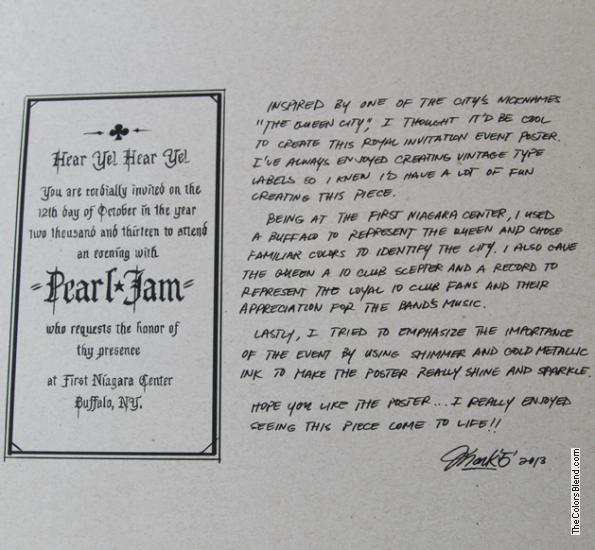 Hear Ye! Hear Ye!
You are cordially invited on the
12th day of October in the year
two thousand and thirteen to attend
an evening with
Pearl★Jam
who requests the honor of
thy presence
at First Niagara Center
Buffalo, NY.
INSPIRED BY ONE OF THE CITY'S NICKNAMES
"THE QUEEN CITY", I THOUGHT IT'D BE COOL
TO CREATE THIS ROYAL INVITATION EVENT POSTER.
I'VE ALWAYS ENJOYED CREATING VINTAGE TYPE
LABELS SO I KNEW I'D HAVE A LOT OF FUN
CREATING THIS PIECE.
BEING AT THE FIRST NIAGARA CENTER, I USED
A BUFFALO TO REPRESENT THE QUEEN AND CHOSE
FAMILIAR COLORS TO IDENTIFY THE CITY. I ALSO GAVE
THE QUEEN A 10 CLUB SCEPTER AND A RECORD TO
REPRESENT THE LOYAL 10 CLUB FANS AND THEIR
APPRECIATION FOR THE BAND'S MUSIC.
LASTLY, I TRIED TO EMPHASIZE THE IMPORTANCE
OF THE EVENT BY USING SHIMMER AND GOLD METALLIC
INK TO MAKE THE POSTER REALLY SHINE AND SPARKLE.
HOPE YOU LIKE THE POSTER... I REALLY ENJOYED
SEEING THIS PIECE COME TO LIFE!!
2013
TheColorsBlend.com